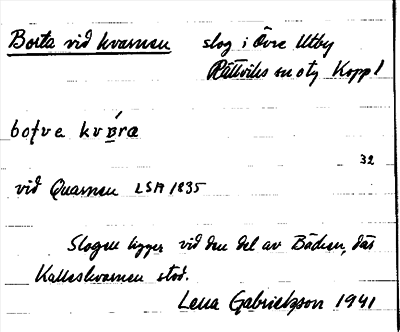 Borta vid kvarnen slog i Övre Utby
Rättviks sn otg Kopp l
32
vid Quarnen LSA 1835
Slogen ligger vid den del av Bodaån, där
Kallaskvarnen stod.
Lena Gabrielsson 1941